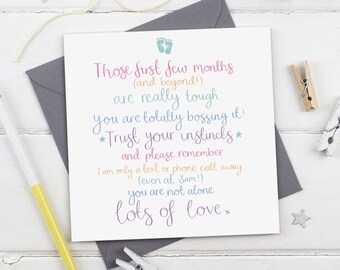 Those first few months
(and beyond!)
are really tough
you are totally bossing it!
*Trust your instincts*
and please remember
I am only a text or phone call away
(even at 3am!)
you are not alone
lots of love x